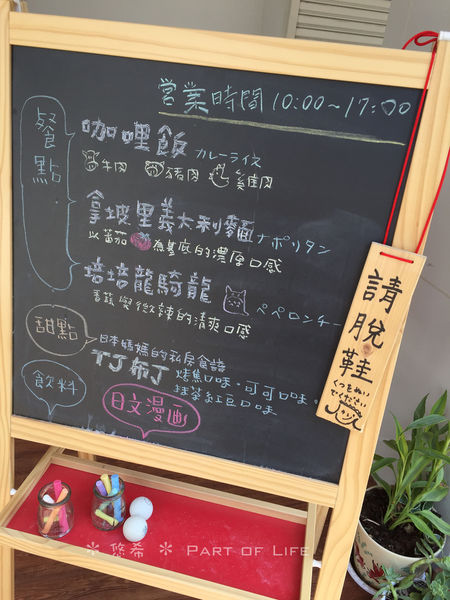 営業時間 10:00~17:00
餐點
咖哩飯 カレーライス
牛肉 豬肉 雞肉
拿坡里義大利麵 ナポリタン
以蕃茄為基底的濃厚口感
培培龍騎龍 ペペロンチー
香蒜與微辣的清爽口感
甜點
日本媽媽的私房食譜
丁丁布丁 烤焦口味・可可口味・
抹茶紅豆口味
飲料
日文漫画
請脫鞋
くつをぬい
でください
* 悠希 * PART OF LIFE